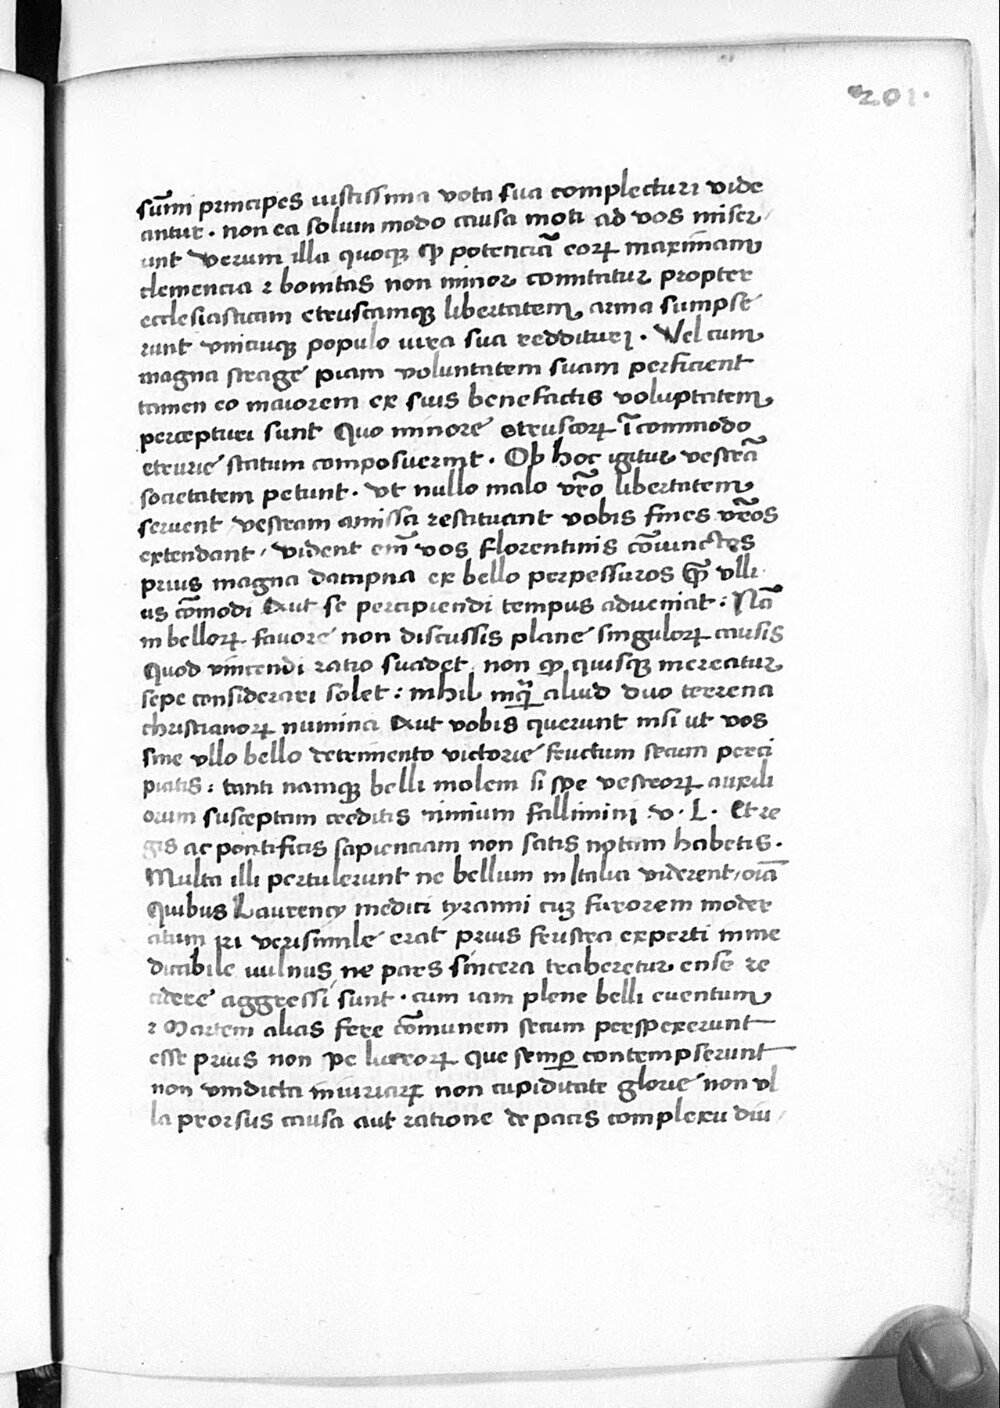 201.
sūmi principes iustissima vota sua complecturi vide
antur. non ea solum modo causa moti ad vos miser/
unt verum illa quoqꝫ ꝙ potenciā eorꝝ maximam
clemencia ⁊ bonitas non minor comitatur propter
ecclesiasticam etruscamqꝫ libertatem arma sumpse
runt vnicuiqꝫ populo iura sua reddituri. Vel cum
magna strage piam voluntatem suam perficient
tamen eo maiorem ex suis benefactis voluptatem
percepturi sunt Quo minore etruscorꝝ īcommodo
etrurie statum composuerint. Ob hoc igitur vestrā
societatem petunt. vt nullo malo vr̄o libertatem
seruent vestram amissa restituant vobis fines vr̄os
extendant/ vident em̄ vos florentinis cōiunctos
prius magna dampna ex bello perpessuros ꝙ̄ vlli
us cōmodi Aut se percipiendi tempus adueniat: Nā
in bellorꝝ fauore non discussis plane singulorꝝ causis
Quod vincendi ratio suadet non ꝙ quisqꝫ mereatur
sepe considerari solet: nihil inquā aliud duo terrena
christianorꝝ numina Aut vobis querunt nisi ut vos
sine vllo bello detrimento victorie fructum secum perci
piatis: tanti namqꝫ belli molem si spe vestrorꝝ auxili
orum susceptam creditis nimium fallimini .v.L. Et re
gis ac pontificis sapienciam non satis notam habetis.
Multa illi pertulerunt ne bellum in Italia viderent/ oīa
Quibus Laurency medici tyranni cuꝫ furorem moder
atum iri verisimile erat prius frustra experti inme
dicabile uulnus ne pars sincera traheretur ense re
cidere aggressi sunt. cum iam plene belli euentum
⁊ Martem alias fere cōmunem secum perspexerunt
esse prius non spe lucrorꝝ que semꝑ contempserunt
non vindicta iniuriarꝝ non cupiditate glorie non vl
la prorsus causa aut ratione de pacis complexu diu/